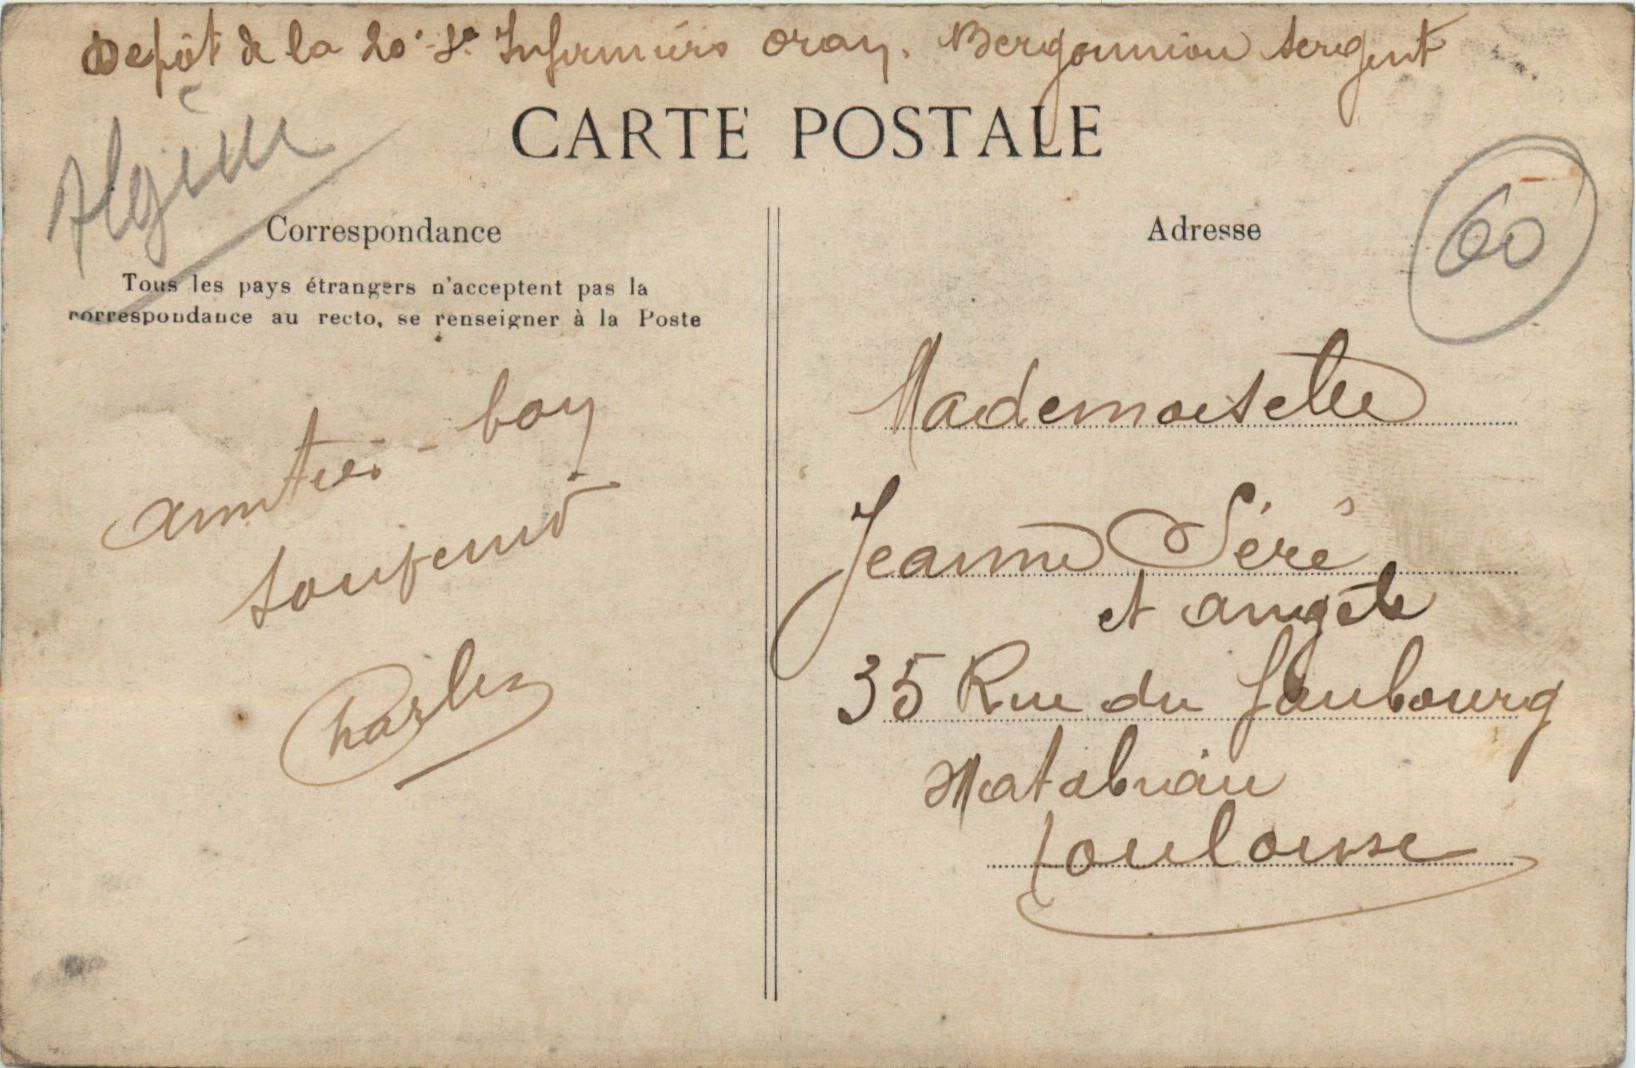 Depôt de la 20e Son Infirmiers oran. Bergouniou sergent
CARTE POSTALE
Algérie
60
Correspondance
Adresse
Tous les pays étrangers n'acceptent pas la
correspondance au recto, se renseigner à la Poste
amitiés - bon
souvenir
Charles
Mademoiselle
Jeanne Séré
et angèle
35 Rue du faubourg
Matabiau
toulouse